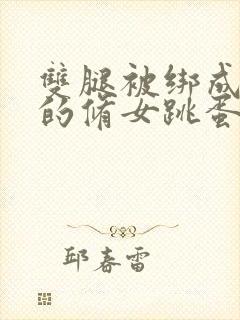 雙腿被绑成
的脩女跳蛋
邱春雷